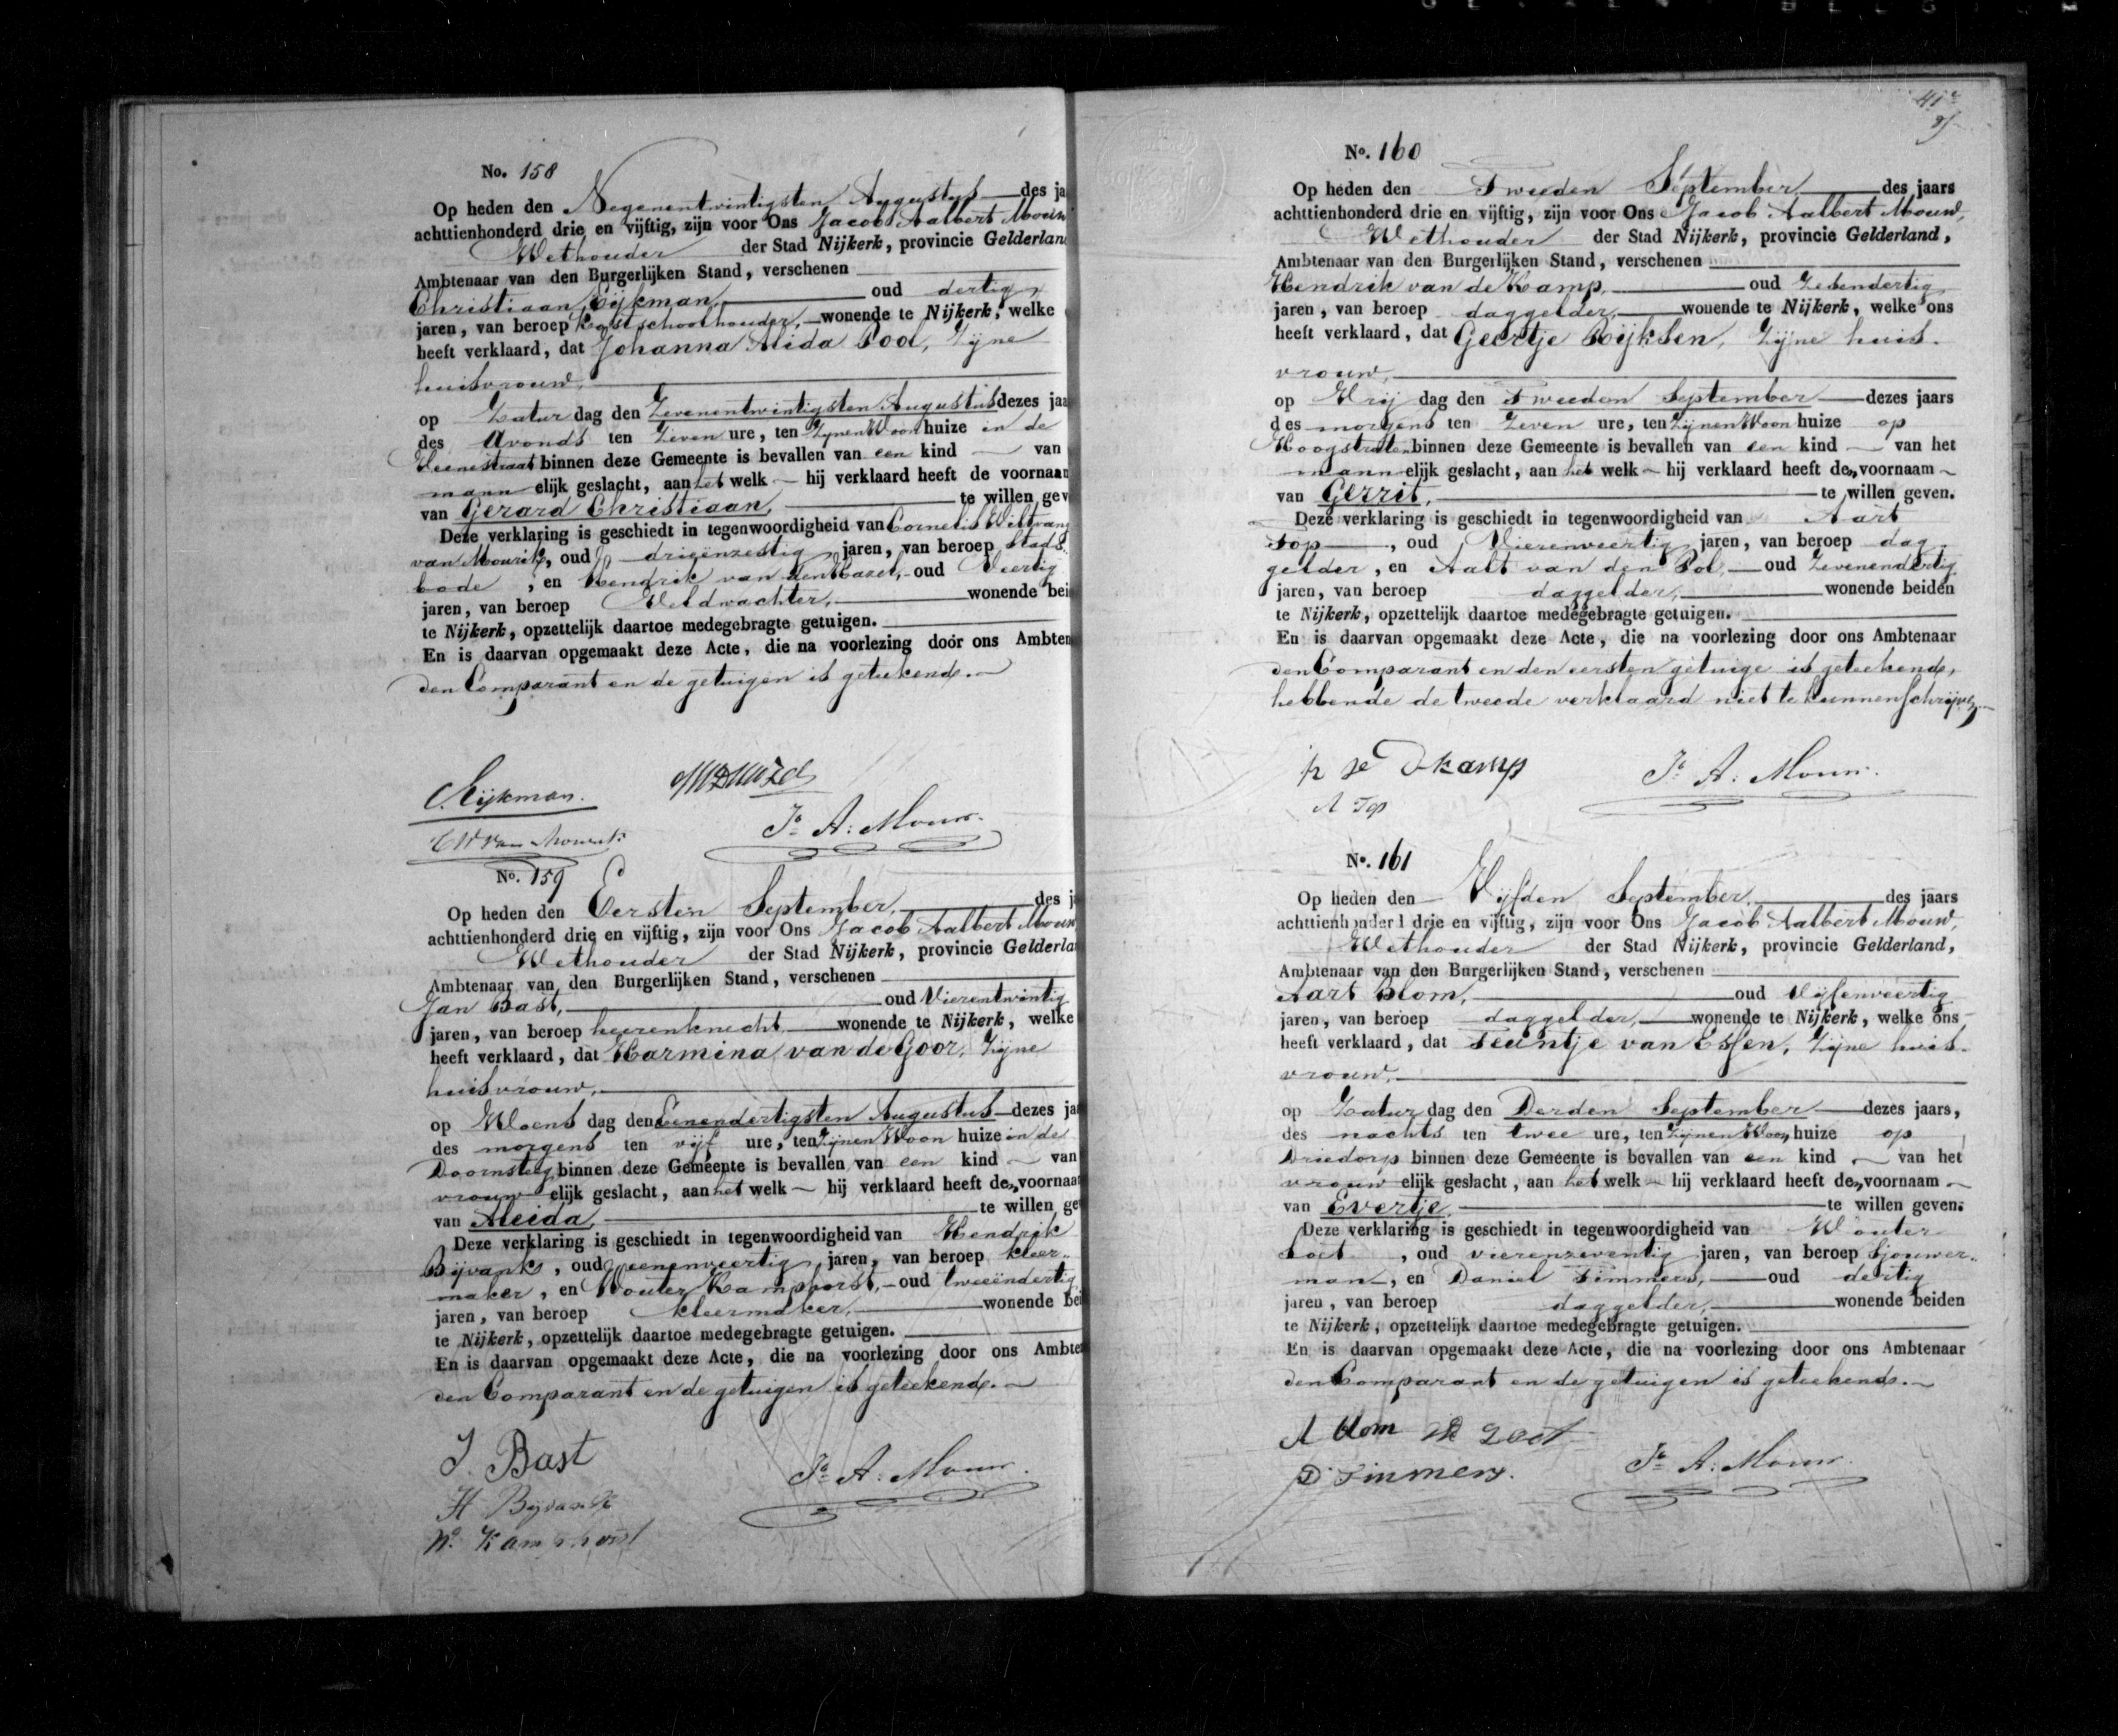 No. 158
Op heden den Negenentwintigsten Augustus des ja
achttienhonderd drie en vijftig, zijn voor Ons Jacob Aalbert Mouw
Wethouder der Stad Nijkerk, provincie Gelderlan
Ambtenaar van den Burgerlijken Stand, verschenen
Christiaan Eijkman, oud dertig
jaren, van beroep Kostschoolhouder, wonende te Nijkerk, welke
heeft verklaard, dat Johanna Alida Pool, Zijne
huisvrouw,
op Zatur dag den Zevenentwintigsten Augustus dezes jaa
des Avonds ten Zeven ure, ten Zijnen Woon huize in de
Veenestraat binnen deze Gemeente is bevallen van een kind van
mann elijk geslacht, aan het welk hij verklaard heeft de voornaam
van Gerard Christiaan, te willen gev
Deze verklaring is geschiedt in tegenwoordigheid van Cornelis Wiltvang
van Mourik, oud drieënzestig jaren, van beroep Stads
bode, en Hendrik van den Hazel, oud Veertig
jaren, van beroep Veldwachter, wonende bei
te Nijkerk, opzettelijk daartoe medegebragte getuigen.
En is daarvan opgemaakt deze Acte, die na voorlezing door ons Ambten
den Comparant en de getuigen is geteekend.
C. Eijkman.
CW van Mourik
Jb A: Mouw.
No. 159
Op heden den Eersten September, des ja
achttienhonderd drie en vijftig, zijn voor Ons Jacob Aalbert Mouw
Wethouder der Stad Nijkerk, provincie Gelderla
Ambtenaar van den Burgerlijken Stand, verschenen
Jan Bast, oud Vierentwintig
jaren, van beroep heerenknecht wonende te Nijkerk, welke
heeft verklaard, dat Harmina van de Goor, Zijne
huisvrouw,
op Woens dag den Eenendertigsten Augustus dezes jaa
des morgens ten vijf ure, ten Zijnen Woon huize in de
Doornsteeg binnen deze Gemeente is bevallen van een kind van
vrouw elijk geslacht, aan het welk hij verklaard heeft den voornaa
van Aleida, te willen ge
Deze verklaring is geschiedt in tegenwoordigheid van Hendrik
Bijvank, oud eenenveertig jaren, van beroep kleer
maker, en Wouter Kamphorst, oud tweeëndertig
jaren, van beroep kleermaker, wonende bei
te Nijkerk, opzettelijk daartoe medegebragte getuigen.
En is daarvan opgemaakt deze Acte, die na voorlezing door ons Ambte
den Comparant en de getuigen is geteekend.
J. Bast
H Bijvank
Wo Kamphorst
Jb A: Mouw.
41e
No. 160
Op heden den Tweeden September, des jaars
achttienhonderd drie en vijftig, zijn voor Ons Jacob Aalbert Mouw,
Wethouder der Stad Nijkerk, provincie Gelderland,
Ambtenaar van den Burgerlijken Stand, verschenen
Hendrik van de Kamp, oud Zesendertig
jaren, van beroep daggelder, wonende te Nijkerk, welke ons
heeft verklaard, dat Geertje Rijksen, Zijne huis-
vrouw,
op Vrij dag den Tweeden September dezes jaars
des morgens ten Zeven ure, ten Zijnen Woon huize op
Hoogstraten binnen deze Gemeente is bevallen van een kind van het
mann elijk geslacht, aan het welk hij verklaard heeft den voornaam
van Gerrit, te willen geven.
Deze verklaring is geschiedt in tegenwoordigheid van Aart
Top, oud Vierenveertig jaren, van beroep dag
gelder, en Aalt van den Pol, oud Zevenendertig
jaren, van beroep daggelder, wonende beiden
te Nijkerk, opzettelijk daartoe medegebragte getuigen.
En is daarvan opgemaakt deze Acte, die na voorlezing door ons Ambtenaar
den Comparant en den eersten getuige is geteekend,
hebbende de tweede verklaard niet te kunnen schrijven
Kamp
A Top
Jb A: Mouw.
No. 161
Op heden den Vijfden September, des jaars
achttienhonderd drie en vijftig, zijn voor Ons Jacob Aalbert Mouw,
Wethouder der Stad Nijkerk, provincie Gelderland,
Ambtenaar van den Burgerlijken Stand, verschenen
Aart Blom, oud Vijfenveertig
jaren, van beroep daggelder, wonende te Nijkerk, welke ons
heeft verklaard, dat Teuntje van Essen, Zijne huis-
vrouw,
op Zatur dag den Derden September dezes jaars,
des nachts ten twee ure, ten Zijnen Woon huize op
Driedorp binnen deze Gemeente is bevallen van een kind van het
vrouw elijk geslacht, aan het welk hij verklaard heeft den voornaam
van Evertje, te willen geven.
Deze verklaring is geschiedt in tegenwoordigheid van Wouter
Poet, oud vierenzeventig jaren, van beroep Sjouwer-
man, en Daniel Timmers, oud dertig
jaren, van beroep daggelder, wonende beiden
te Nijkerk, opzettelijk daartoe medegebragte getuigen.
En is daarvan opgemaakt deze Acte, die na voorlezing door ons Ambtenaar
den Comparant en de getuigen is geteekend.
A Blom
D Timmers.
Jb A: Mouw.